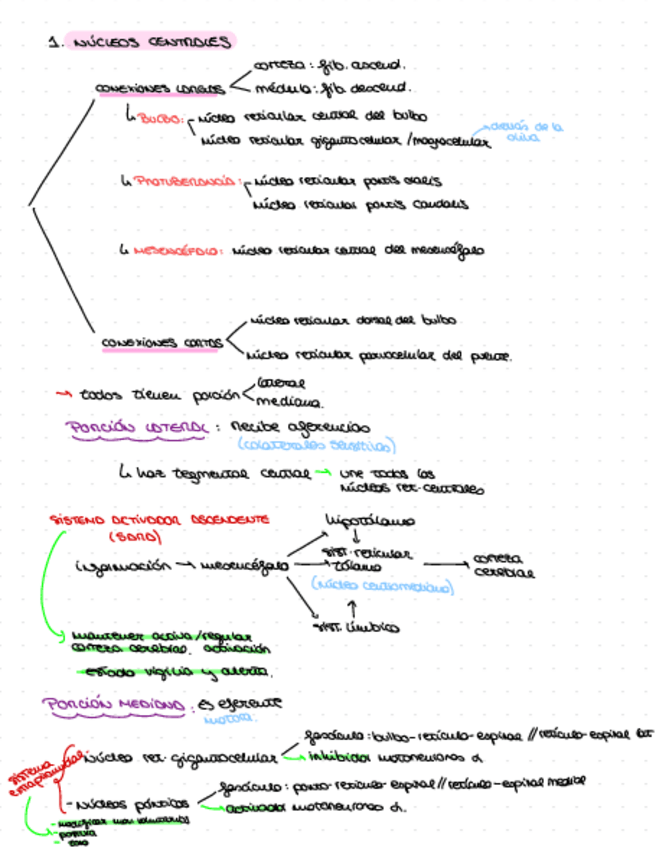 1. NÚCLEOS CENTRALES
CONEXIONES LARGAS
corteza: fib. ascend.
médula: fib. descend.
↳ BULBO: núcleo reticular central del bulbo
núcleo reticular gigantocelular / magnocelular
→ detrás de la
oliva
↳ PROTUBERANCIA: núcleo reticular pontis oralis
núcleo reticular pontis caudalis
↳ MESENCÉFALO: núcleo reticular central del mesencéfalo
CONEXIONES CORTAS
núcleo reticular dorsal del bulbo
núcleo reticular parvocelular del puente.
→ todos tienen porción
lateral
mediana.
PORCIÓN LATERAL: recibe aferencias
(colaterales sensitivas)
↳ haz tegmental central → une todos los
núcleos ret. centrales
SISTEMA ACTIVADOR ASCENDENTE
(SARA)
información → mesencéfalo
hipotálamo
↓
sist. reticular
→ tálamo
(núcleo centromediano)
↑
sist. límbico
→ corteza
cerebral
mantener activa/regular
corteza cerebral. activación
estado vigilia y alerta.
PORCIÓN MEDIANA: es eferente
motora.
sistema
extrapiramidal
- Núcleo ret. gigantocelular
fascículo: bulbo-retículo-espinal // retículo-espinal lat
→ inhibidor motoneuronas α
- Núcleos pónticos
fascículo: ponto-retículo-espinal // retículo-espinal medial
→ activador motoneuronas α.
- modificar mov voluntarios
- postura
- tono